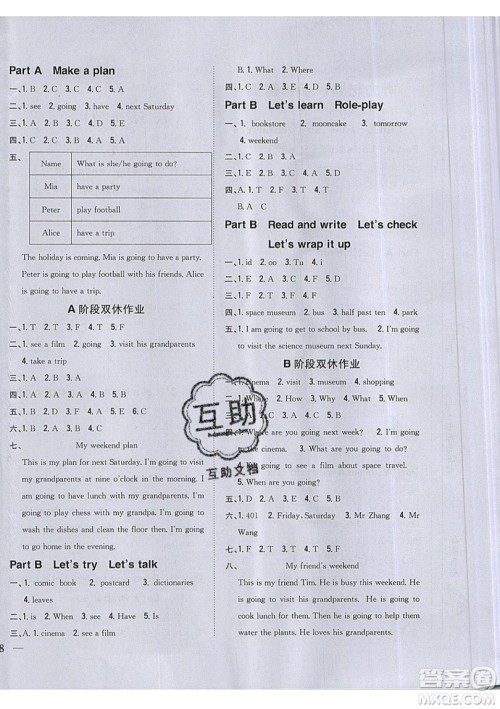 Part A   Make a plan
一、1. B  2. C  3. C  4. A  5. B
二、1. see  2. going  3. have  4. next Saturday
三、1. B  2. C  3. A  4. D  5. E
四、1. C  2. A  3. B  4. C  5. B
五、
Name   What is she/he going to do?
Mia   have a party
Peter   play football
Alice   have a trip
The holiday is coming. Mia is going to have a party.
Peter is going to play football with his friends. Alice
is going to have a trip.
A 阶段双休作业
一、1. T  2. F  3. T  4. F  5. T
二、1. see a film  2. go  3. visit his grandparents
4. take a trip
三、1. D
四、1. A
五、1. C
六、1. C
七、   My weekend plan
This is my plan for next Saturday. I'm going to visit
my grandparents at nine o'clock in the morning. I'm
going to have lunch with my grandparents. I'm going
to play chess with my grandpa. I'm going to
wash the dishes and clean the floor then. I'm going to
go home in the evening.
Part B   Let's try   Let's talk
一、1. comic book  2. postcard  3. dictionaries
4. leaves
二、1. is  2. When  3. Have  4. Is
三、A. 1. cinema  2. see a film
8
B. 1. What  2. Where
四、1. B  2. C  3. C  4. B  5. A
Part B   Let's learn   Role-play
一、1. bookstore  2. mooncake  3. tomorrow
4. weekend
二、1. B  2. A  3. C  4. C  5. C
三、1. E  2. A  3. B  4. C  5. D
四、A. 1. T  2. T  3. F  4. T
B. A
Part B   Read and write   Let's check
Let's wrap it up
一、1. id  2. oo  3. u  4. i
二、1. A  2. C  3. B  4. B  5. C
三、1. space museum  2. bus  3. half past ten  4. park
四、1. I am going to get to school by bus.  2. I'm going
to visit the science museum next Sunday.
B 阶段双休作业
cinema  2. visit  3. museum  4. shopping
Where
Where are you going next week?
to the cinema.
are going to see a film about space travel.
5. When are you going?
五、1. D
六、1. 401  2. Friday, Saturday  3. Mr Zhang  4. Mr
Wang
七、1. F  2. F  3. T  4. F  5. T
八、   My friend's weekend
This is my friend Tim. He is busy this weekend. He
is going to visit his grandparents. He is going to
water the plants. He is going to love his grandparents.
互助
互助文档
答案圈
MXQE.COM